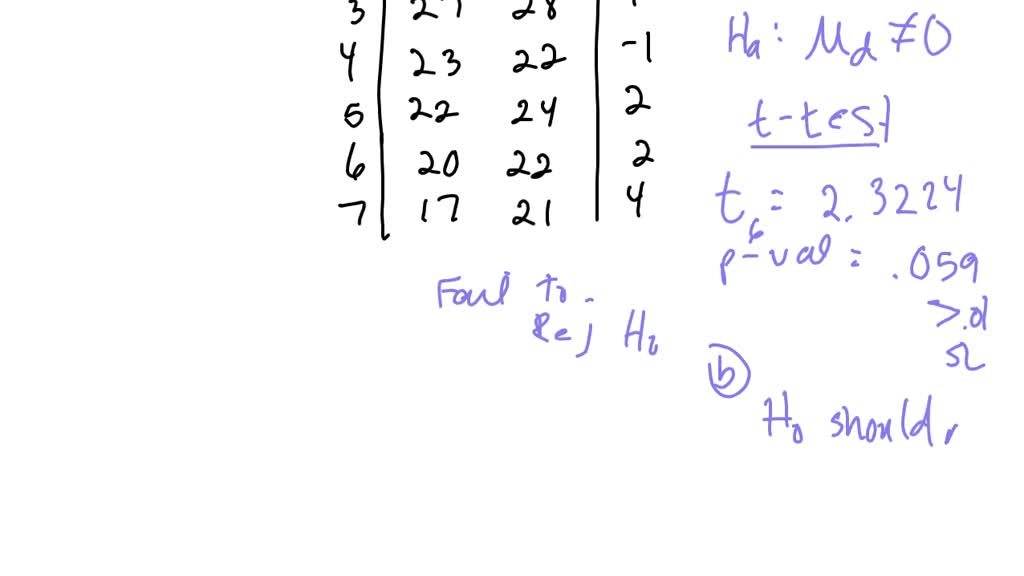 3 27 28
4 23 22 -1
5 22 24 2
6 20 22 2
7 17 21 4
Ha: Md ≠ 0
t-test
t6 = 2.3224
p-val = .059
>.01
Fail to
Rej H0
so
b
H0 should